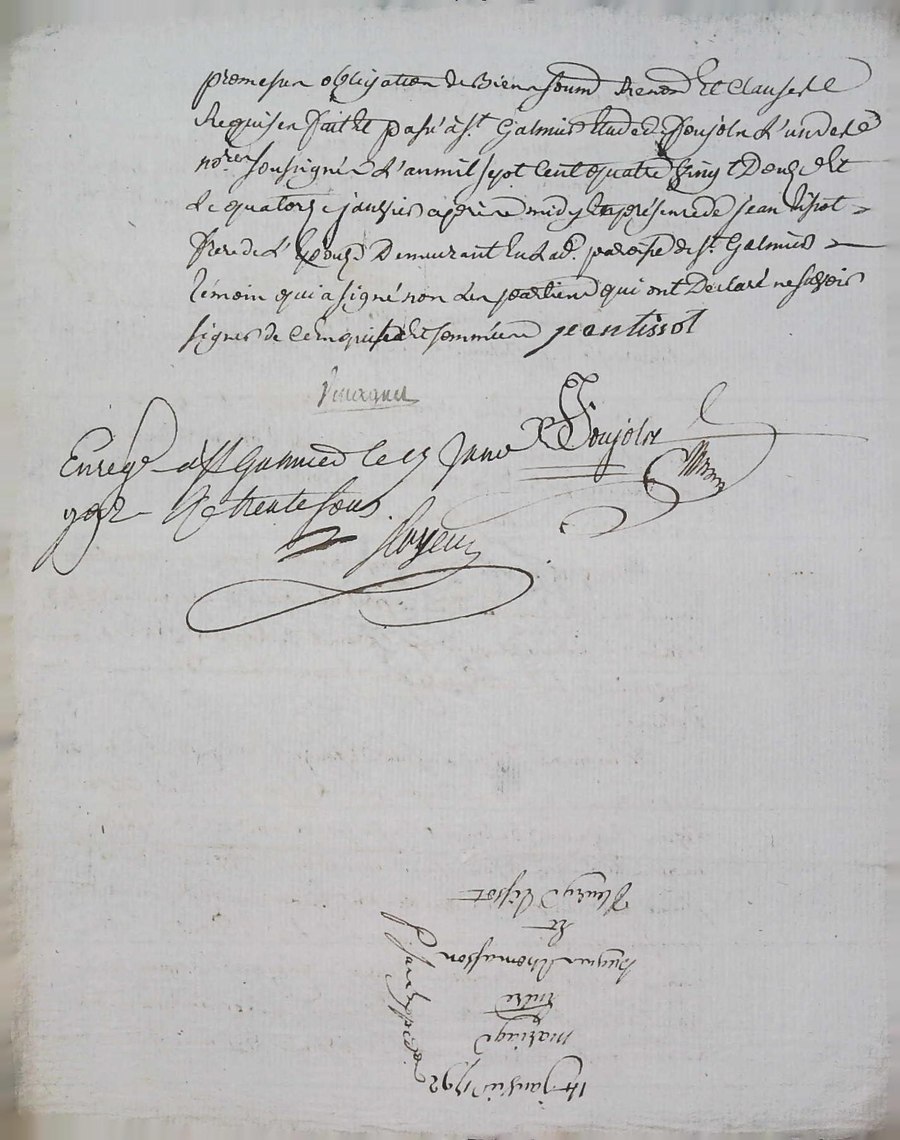 promesse obligation de Biens soum.d Renon.d Et clauses de
Requis en fait et passé à st. Galmier Etude de foujols L'un des
no.res soussignés L'an mil sept Cent quatre vingt Douze Et
Le quatorze janvier après midy En présence de jean tissot
frere de L'Epouse Demeurant En lad. paroisse de st. Galmier
témoin qui a signé non Les parties qui ont Déclaré ne savoir
signer de ce Enquises Et sommées jean tissot
foujols
Enregé à st Galmier le 15 Janv
792 Rç trente sous
14 janvier 1792
mariage
Entre
thomasson
Et
fleurye tissot
Expédié